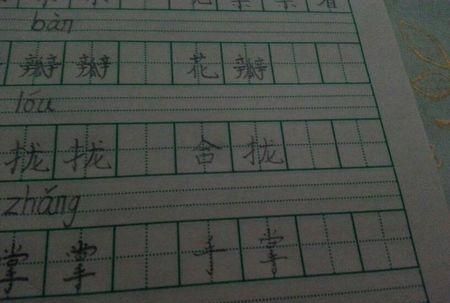 bàn
瓣 瓣 花 瓣
lóu
拢 拢 合 拢
zhǎng
掌 掌 手 掌